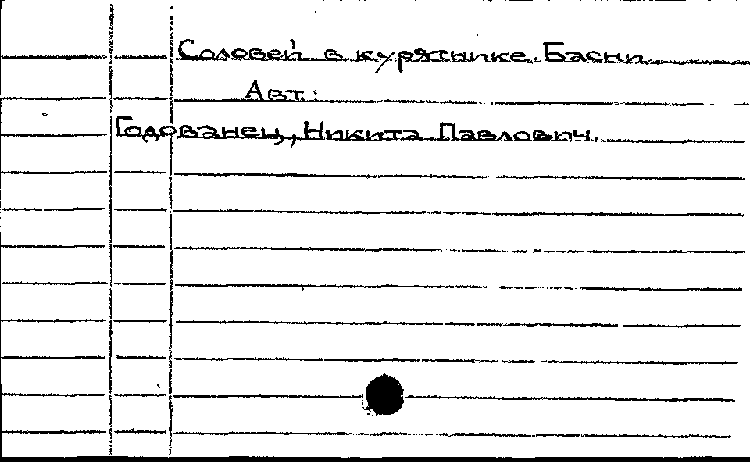 Соловей в курятнике. Басни.
Авт.:
Годованец, Никита Павлович.